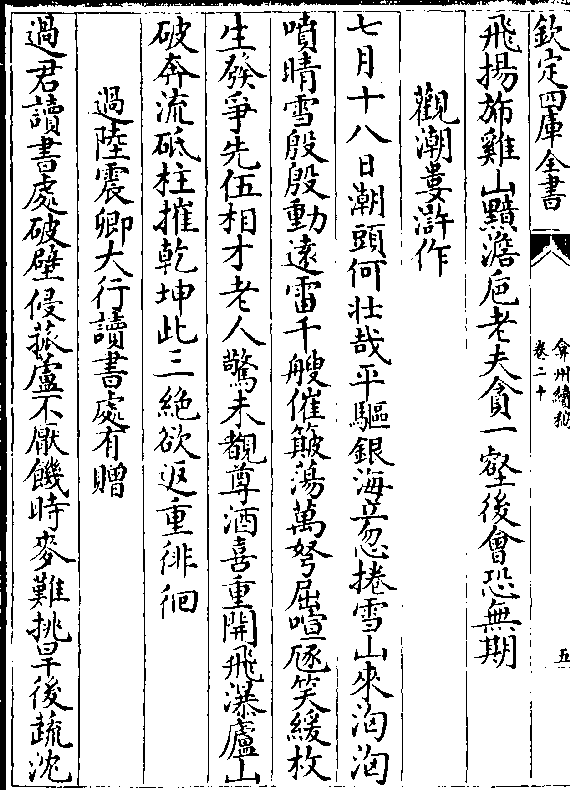 欽定四庫全書
弇州續稿
卷二十
五
飛揚斾雞山黯澹巵老夫貪一壑後會恐無期
觀潮婁滸作
七月十八日潮頭何壮哉平驅銀海立忽捲雪山來洶洶
噴晴雪殷殷動遠雷千艘催簸蕩萬弩屈喧豗笑緩枚
生發爭先伍相才老人驚未覩尊酒喜重開飛瀑廬山
破奔流砥柱摧乾坤此三絶欲返重徘徊
過陸震卿大行讀書處有贈
過君讀書處破壁侵菰蘆不厭饑時麥難挑旱後蔬沈